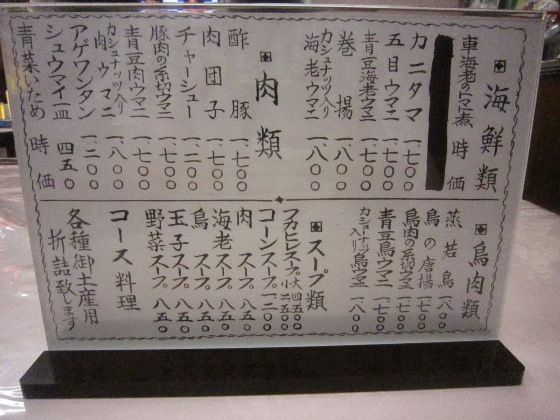 海鮮類
車海老のママ煮 時価
カニタマ 一、七〇〇
五目ウマニ 一、七〇〇
青豆海老ウマニ 一、七〇〇
巻揚 一、八〇〇
カシュナッツ入り海老ウマニ 一、八〇〇
肉類
酢豚 一、七〇〇
肉団子 一、七〇〇
チャーシュー 一、二〇〇
豚肉の糸切ウマニ 一、七〇〇
青豆肉ウマニ 一、七〇〇
カシュナッツ入り肉ウマニ 一、八〇〇
アゲワンタン 一、二〇〇
シュウマイ一皿 四五〇
青菜いため 時価
鳥肉類
蒸若鳥 一、八〇〇
鳥の唐揚 一、七〇〇
鳥肉の糸切ウマニ 一、七〇〇
青豆鳥ウマニ 一、七〇〇
カシュナッツ入り鳥ウマニ 一、八〇〇
スープ類
フカヒレスープ 大四五〇〇 小二五〇〇
コーンスープ 一二〇〇
肉スープ 八五〇
海老スープ 八五〇
鳥スープ 八五〇
玉子スープ 八五〇
野菜スープ 八五〇
コース料理
各種御土産用
折詰致します